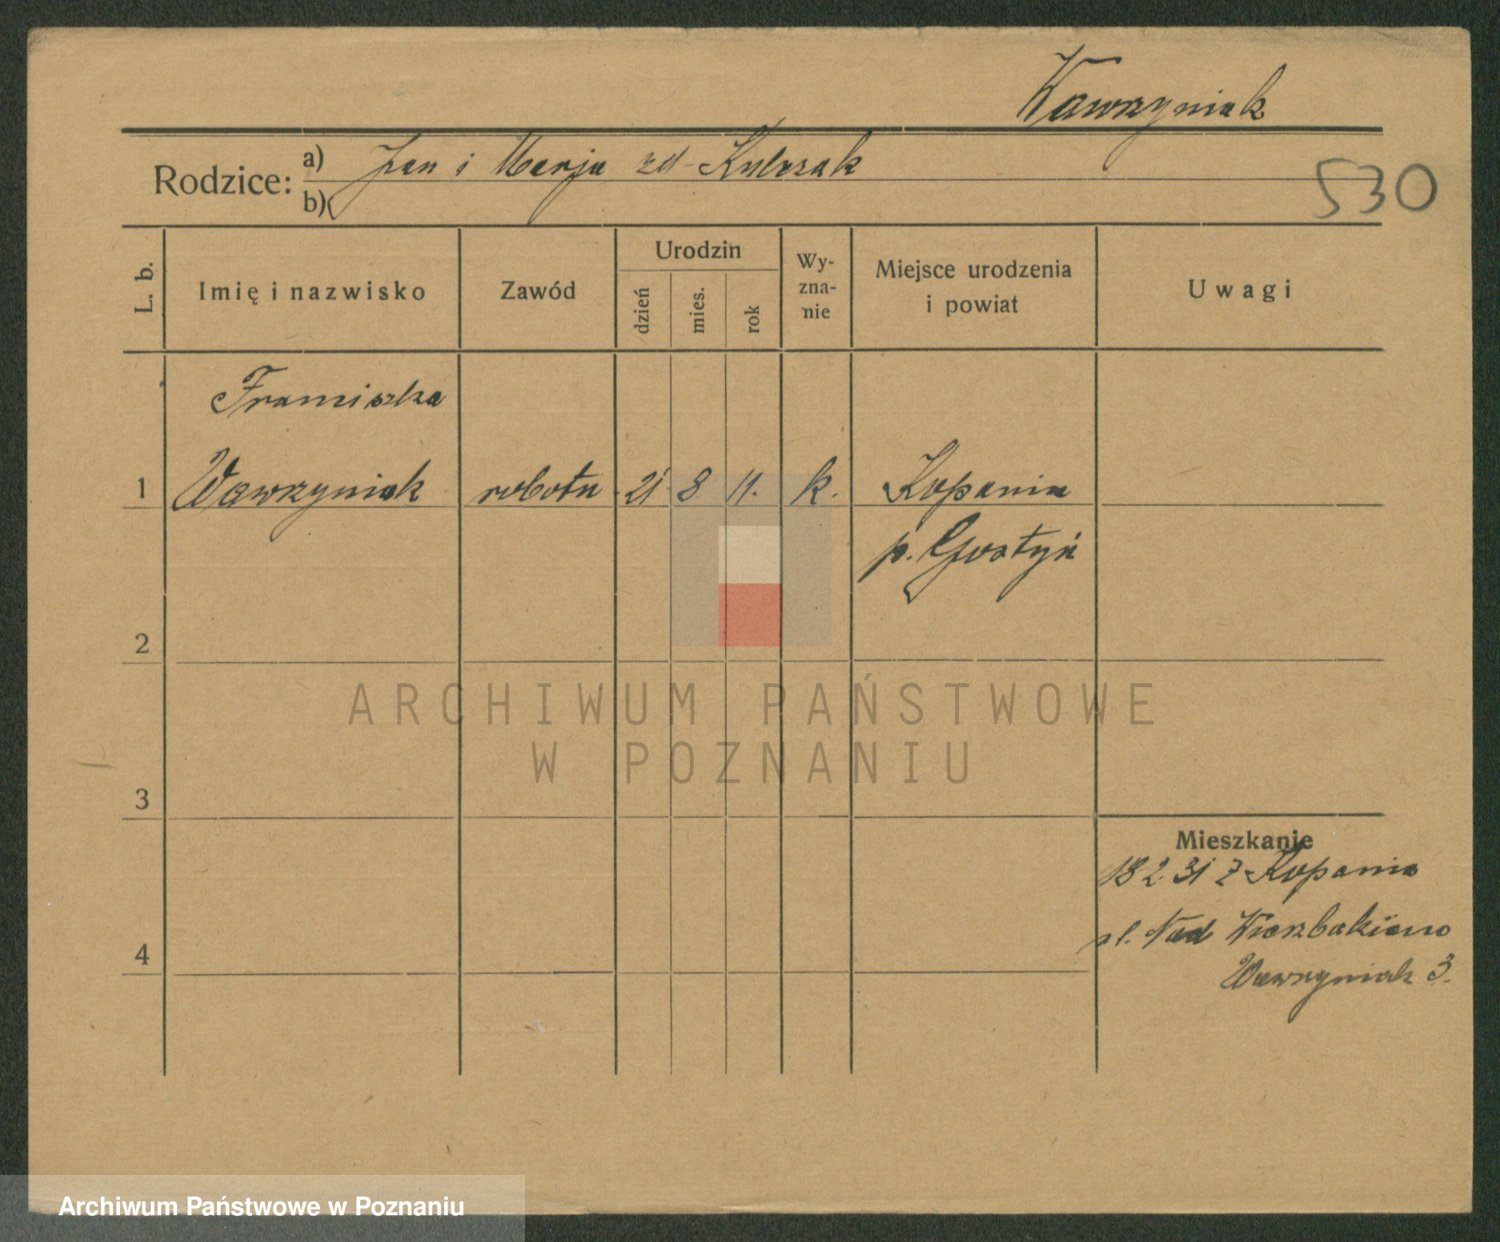 Wawrzyniak
Rodzice: a) Jan i Marja zd Kulczak
b)
530
L. b. Imię i nazwisko Zawód Urodzin dzień mies. rok Wy-zna-nie Miejsce urodzenia i powiat Uwagi
Franciszka
1 Wawrzyniak robotn 21 8 11. k. Kopania
p. Gostyń
2
ARCHIWUM PAŃSTWOWE
W POZNANIU
3
Mieszkanie
18 2. 31 z Kopania
ul. Nad Wierzbakiem
4
Wawrzyniak 3.
Archiwum Państwowe w Poznaniu